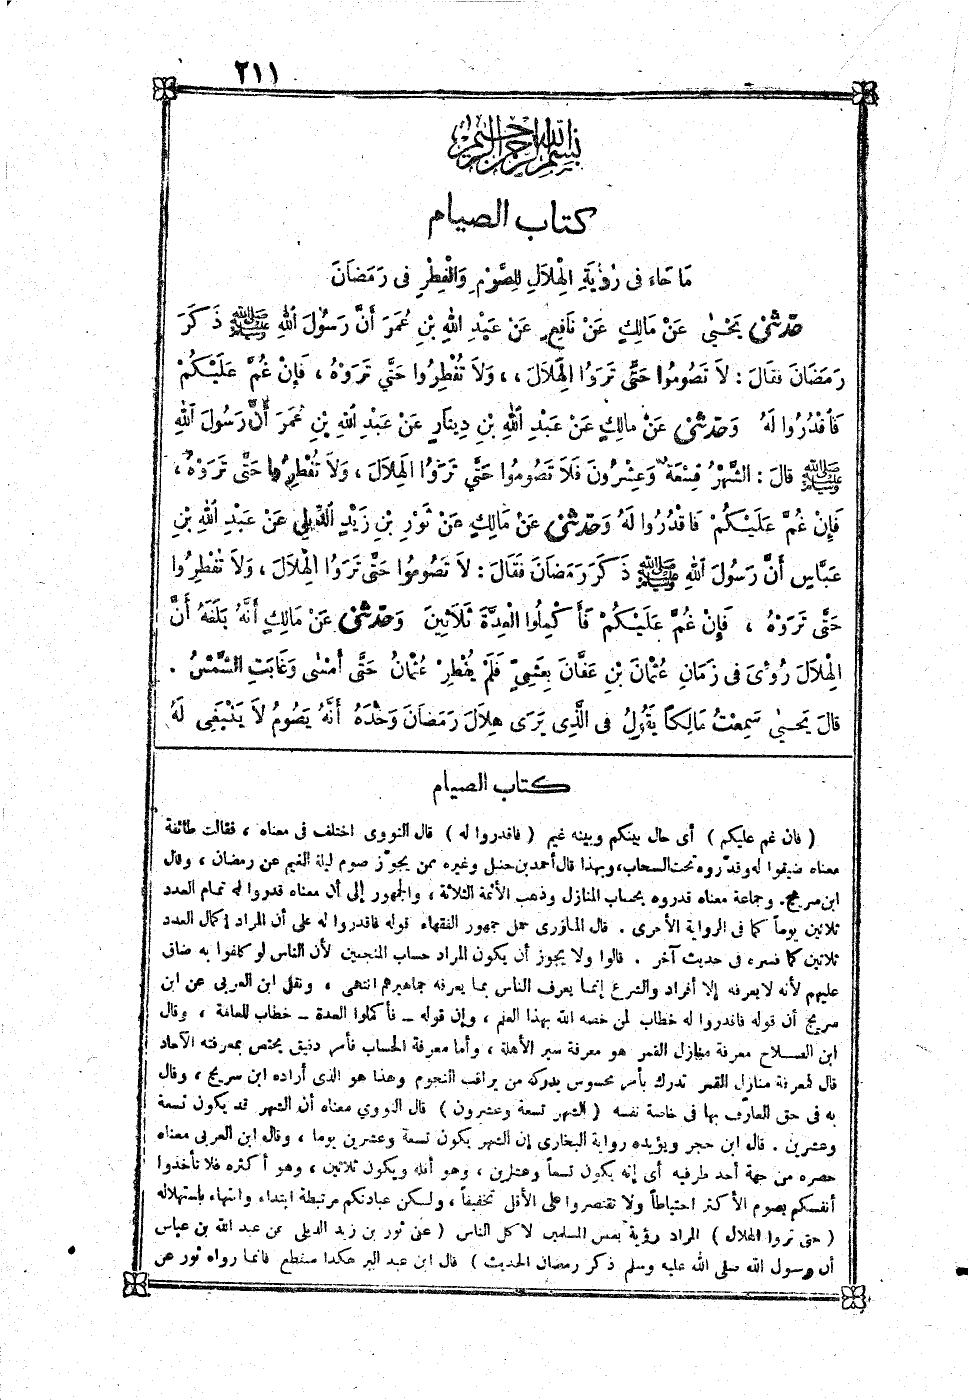 ٢١١
بسم الله الرحمن الرحيم
كتاب الصيام
مَا جَاءَ فِى رُؤْيَةِ الْهِلَالِ لِلصَّوْمِ وَالْفِطْرِ فِى رَمَضَانَ
حَدَّثَنِى يَحْيَى عَنْ مَالِكٍ عَنْ نَافِعٍ عَنْ عَبْدِ اللهِ بْنِ عُمَرَ أَنَّ رَسُولَ اللهِ ﷺ ذَكَرَ
رَمَضَانَ فَقَالَ : لاَ تَصُومُوا حَتَّى تَرَوُا الْهِلَالَ ، وَلاَ تُفْطِرُوا حَتَّى تَرَوْهُ ، فَإِنْ غُمَّ عَلَيْكُمْ
فَاقْدُرُوا لَهُ وَحَدَّثَنِى عَنْ مَالِكٍ عَنْ عَبْدِ اللهِ بْنِ دِينَارٍ عَنْ عَبْدِ اللهِ بْنِ عُمَرَ أَنَّ رَسُولَ اللهِ
ﷺ قَالَ : الشَّهْرُ تِسْعَةٌ وَعِشْرُونَ فَلاَ تَصُومُوا حَتَّى تَرَوُا الْهِلَالَ ، وَلاَ تُفْطِرُوا حَتَّى تَرَوْهُ ،
فَإِنْ غُمَّ عَلَيْكُمْ فَاقْدُرُوا لَهُ وَحَدَّثَنِى عَنْ مَالِكٍ عَنْ ثَوْرِ بْنِ زَيْدٍ الدِّيلِى عَنْ عَبْدِ اللهِ بْنِ
عَبَّاسٍ أَنَّ رَسُولَ اللهِ ﷺ ذَكَرَ رَمَضَانَ فَقَالَ : لاَ تَصُومُوا حَتَّى تَرَوُا الْهِلَالَ ، وَلاَ تُفْطِرُوا
حَتَّى تَرَوْهُ ، فَإِنْ غُمَّ عَلَيْكُمْ فَأَكْمِلُوا الْعِدَّةَ ثَلاَثِينَ وَحَدَّثَنِى عَنْ مَالِكٍ أَنَّهُ بَلَغَهُ أَنَّ
الْهِلَالَ رُؤِىَ فِى زَمَانِ عُثْمَانَ بْنِ عَفَّانَ بِعَشِىٍّ فَلَمْ يُفْطِرْ عُثْمَانُ حَتَّى أَمْسَى وَغَابَتِ الشَّمْسُ .
قَالَ يَحْيَى سَمِعْتُ مَالِكاً يَقُولُ فِى الَّذِى يَرَى هِلَالَ رَمَضَانَ وَحْدَهُ أَنَّهُ يَصُومُ لاَ يَنْبَغِى لَهُ
كتاب الصيام
( فان غم عليكم ) أى حال بينكم وبينه غيم ( فاقدروا له ) قال النووى اختلف فى معناه ، فقالت طائفة
معناه ضيقوا له وقدّروه تحت السحاب ، وبهذا قال أحمد بن حنبل وغيره ممن يجوّز صوم ليلة الغيم عن رمضان ، وقال
ابن سريج . وجماعة معناه قدروه بحساب المنازل وذهب الأئمة الثلاثة ، والجمهور إلى أن معناه قدروا له تمام العدد
ثلاثين يوماً كما فى الرواية الأخرى . قال المازرى حمل جمهور الفقهاء قوله فاقدروا له على أن المراد إكمال العدد
ثلاثين كما فسره فى حديث آخر . قالوا ولا يجوز أن يكون المراد حساب المنجمين لأن الناس لو كلفوا به ضاق
عليهم لأنه لا يعرفه إلا أفراد والشرع إنما يعرف الناس بما يعرفه جماهيرهم انتهى ، ونقل ابن العربى عن ابن
سريج أن قوله فاقدروا له خطاب لمن خصه الله بهذا العلم ، وإن قوله – فأكملوا العدة – خطاب للعامة ، وقال
ابن الصلاح معرفة منازل القمر هو معرفة سير الأهلة ، وأما معرفة الحساب فأمر دقيق يختص بمعرفته الآحاد
قال فمعرفة منازل القمر تدرك بأمر محسوس يدركه من يراقب النجوم وهذا هو الذى أراده ابن سريج ، وقال
به فى حق العارف بها فى خاصة نفسه ( الشهر تسعة وعشرون ) قال النووي معناه أن الشهر قد يكون تسعة
وعشرين . قال ابن حجر ويؤيده رواية البخارى إن الشهر يكون تسعة وعشرين يوما ، وقال ابن العربى معناه
حصره من جهة أحد طرفيه أى إنه يكون تسعاً وعشرين ، وهو أقله ويكون ثلاثين ، وهو أكثره فلا تأخذوا
أنفسكم بصوم الأكثر احتياطاً ولا تقتصروا على الأقل تخفيفاً ، ولكن عبادتكم مرتبطة ابتداء وانتهاء باستهلاله
( حتى تروا الهلال ) المراد رؤية بعض المسلمين لا كل الناس ( عن ثور بن زيد الديلى عن عبد الله بن عباس
أن رسول الله صلى الله عليه وسلم ذكر رمضان الحديث ) قال ابن عبد البر هكذا منقطع فانما رواه ثور عن